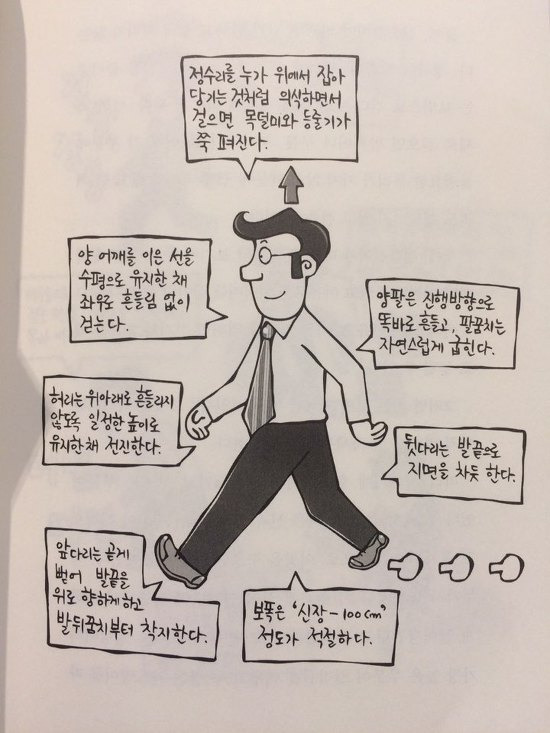 정수리를 누가 위에서 잡아
당기는 것처럼 의식하면서
걸으면 목덜미와 등줄기가
쭉 펴진다.
양 어깨를 이은 선을
수평으로 유지한 채
좌우로 흔들림 없이
걷는다.
양팔은 진행방향으로
똑바로 흔들고, 팔꿈치는
자연스럽게 굽힌다.
허리는 위아래로 흔들리지
않도록 일정한 높이로
유지한채 전진한다.
뒷다리는 발끝으로
지면을 차듯 한다.
앞다리는 곧게
뻗어 발끝을
위로 향하게 하고
발뒤꿈치부터 착지한다.
보폭은 "신장-100cm"
정도가 적절하다.